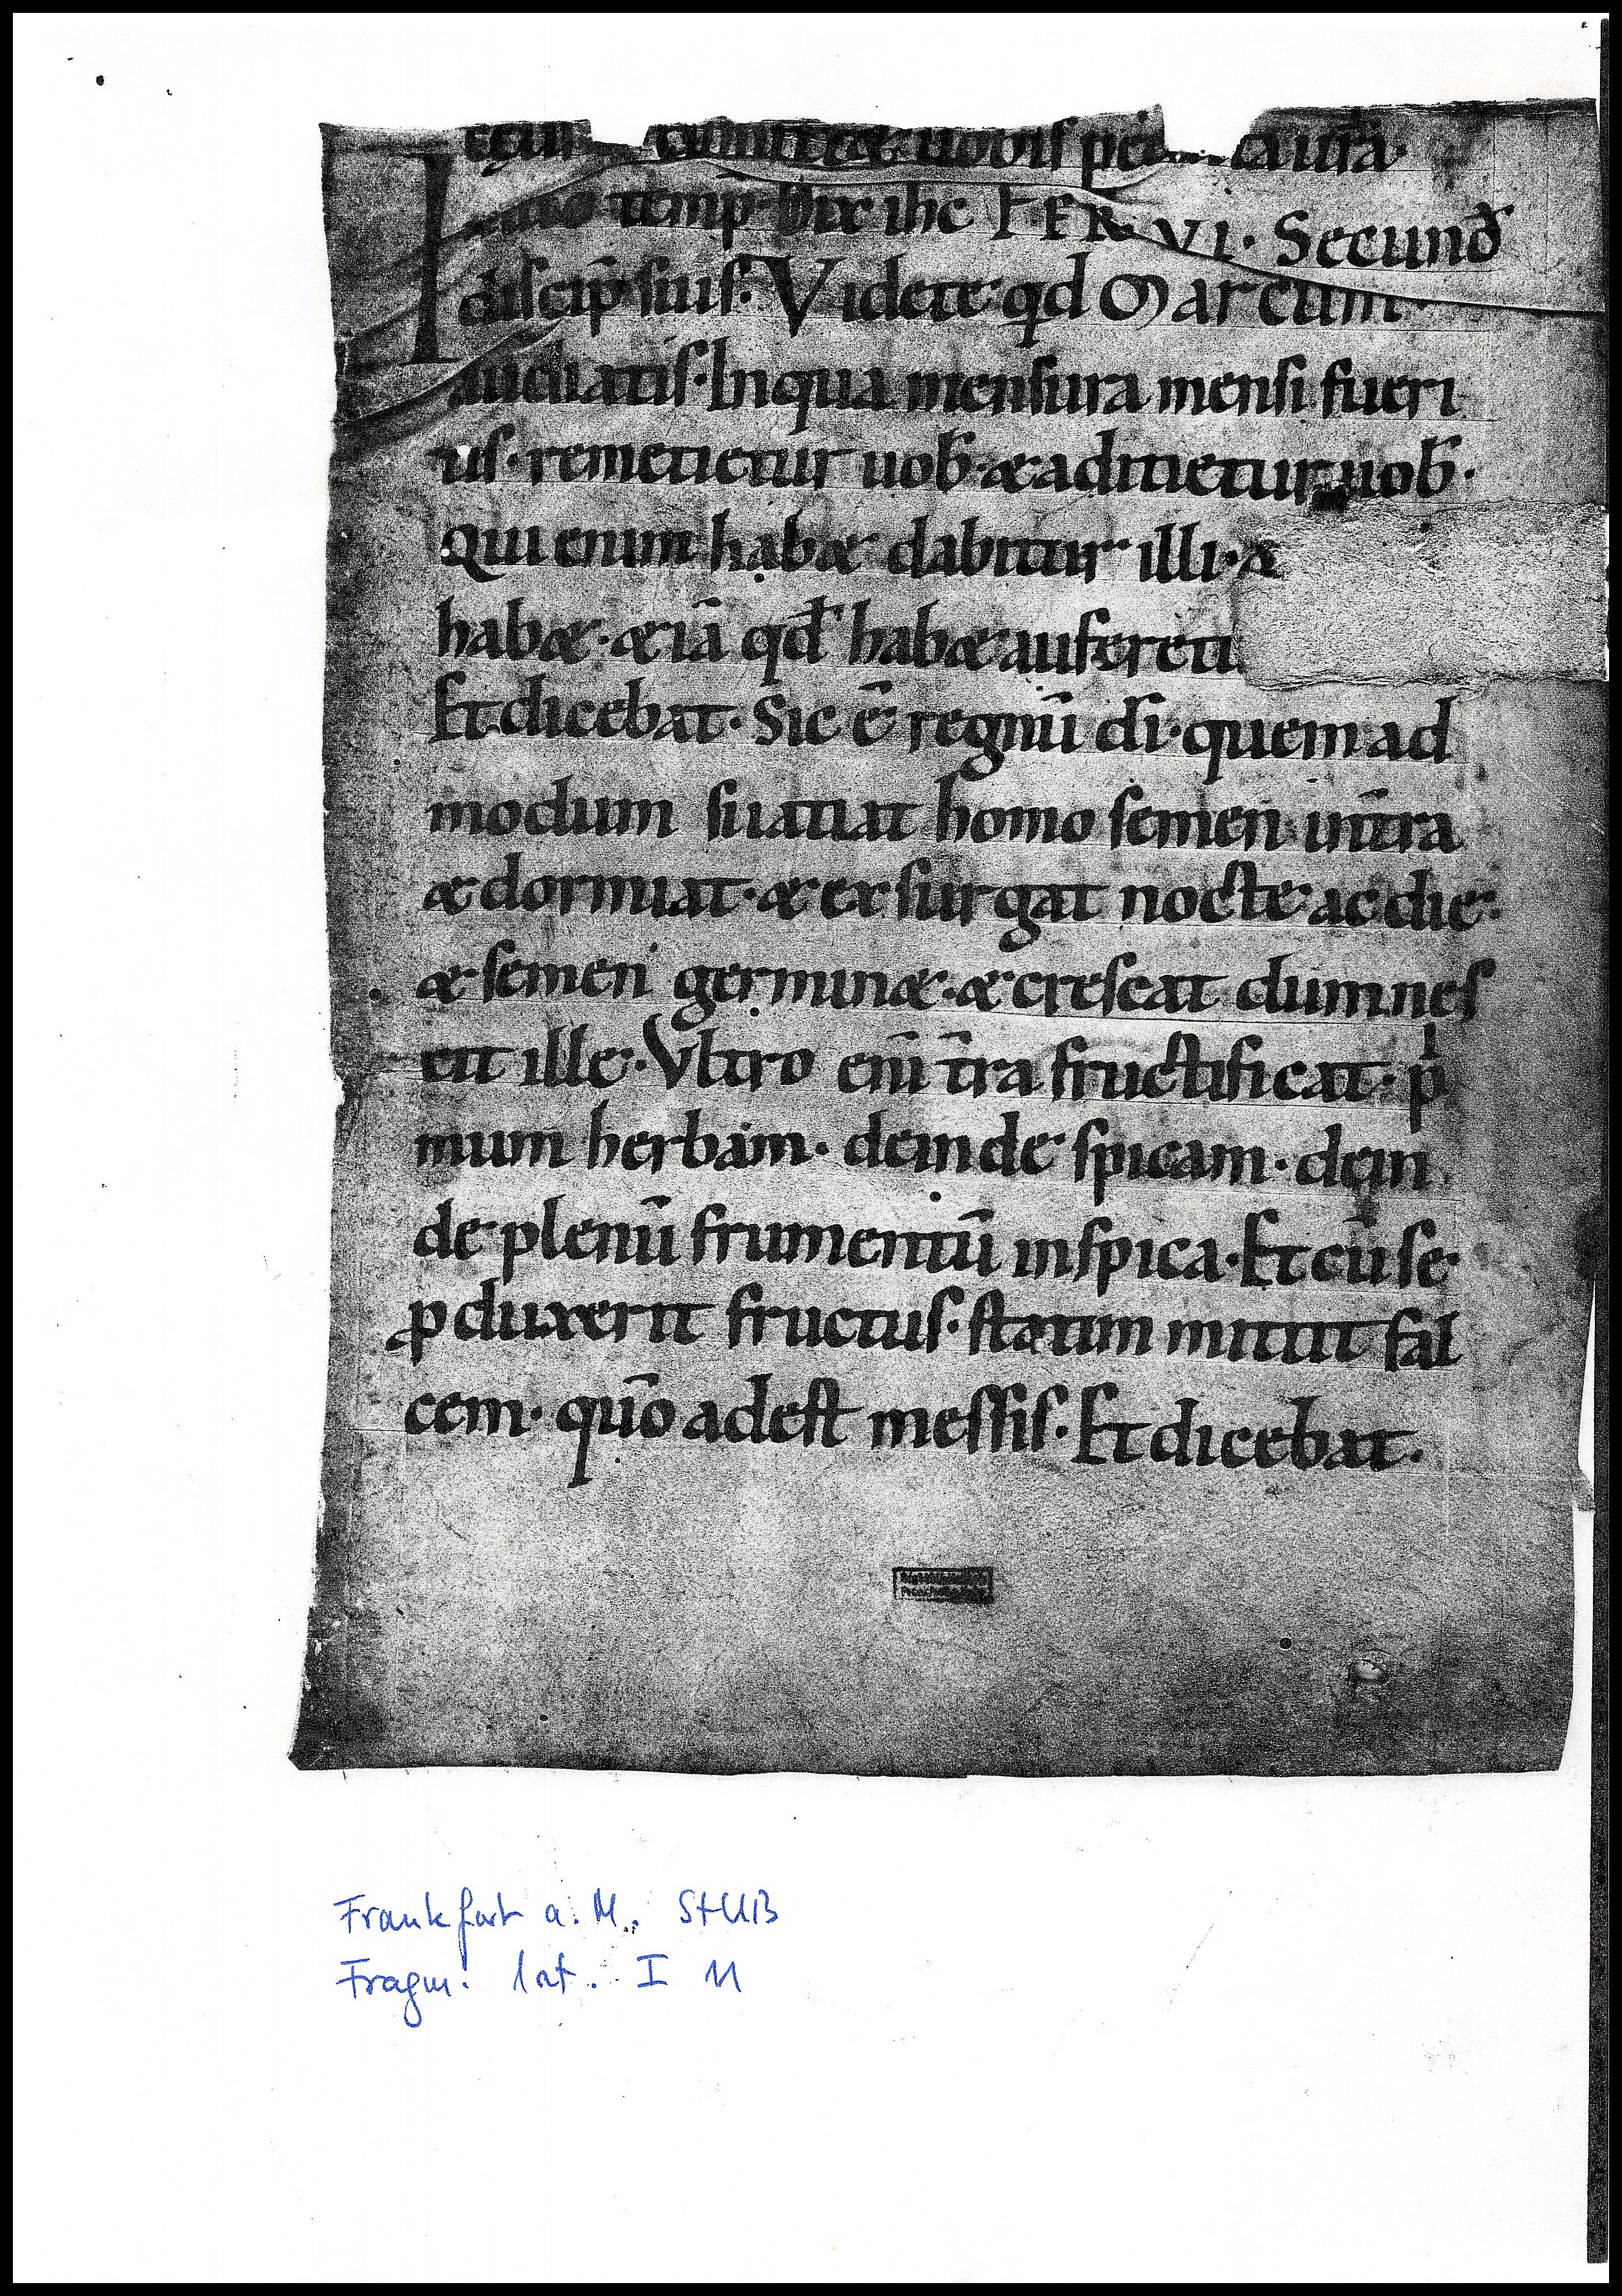 uobis pec ca ura
temp̄ Dix ihc FER VI. Secund̄
discip̄ suis. Videte qd Marcum
audiatis. In qua mensura mensi fueri
tis. remetietur uob̄. & adicietur uob̄.
Qui enim hab& dabitur illi. &
hab&. &iā qd̄ hab& auferetu
Et dicebat. Sic ē regnū dī. quem ad
modum si iatiat homo semen in tr̄a
& dormiat. & exsurgat nocte ac die.
& semen germin&. & crescat dum nes
cit ille. Vltro enī tr̄a fructificat. pⁱ
mum herbam. deinde spicam. dein
de plenū frumentū in spica. Et cū se
ꝓduxerit fructus. statim mittit fal
cem. quō adest messis. Et dicebat.
Frankfurt a. M. StUB
Fragm. lat. I 11